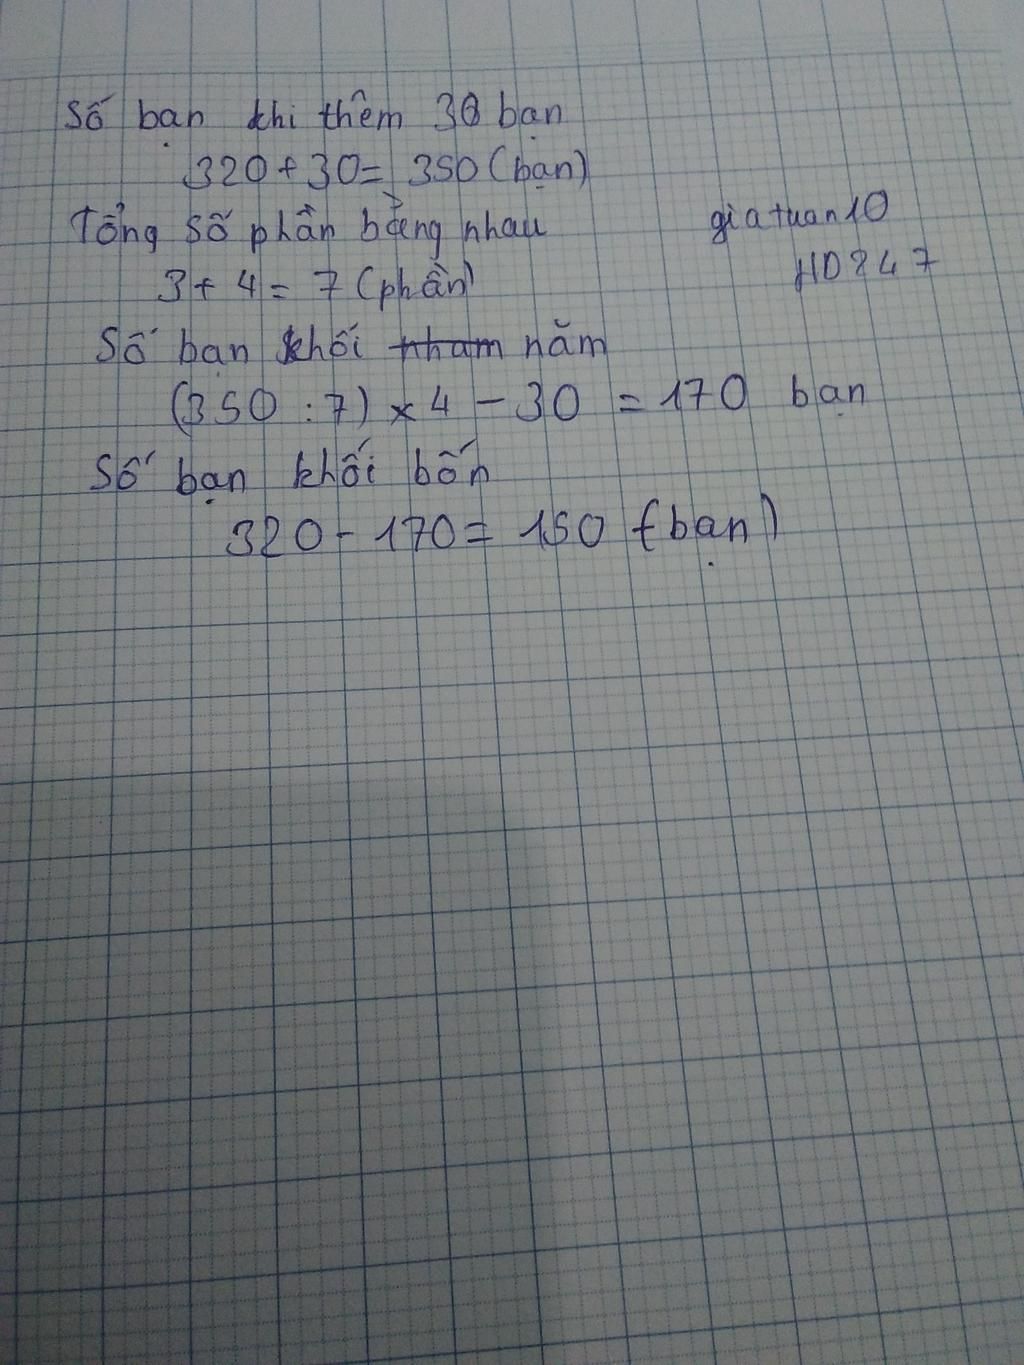 Số bạn khi thêm 30 bạn
320 + 30 = 350 (bạn)
Tổng số phần bằng nhau
3 + 4 = 7 (phần)
Số bạn khối năm
(350 : 7) x 4 - 30 = 170 bạn
Số bạn khối bốn
320 - 170 = 150 (bạn)
giatuan10
HD247